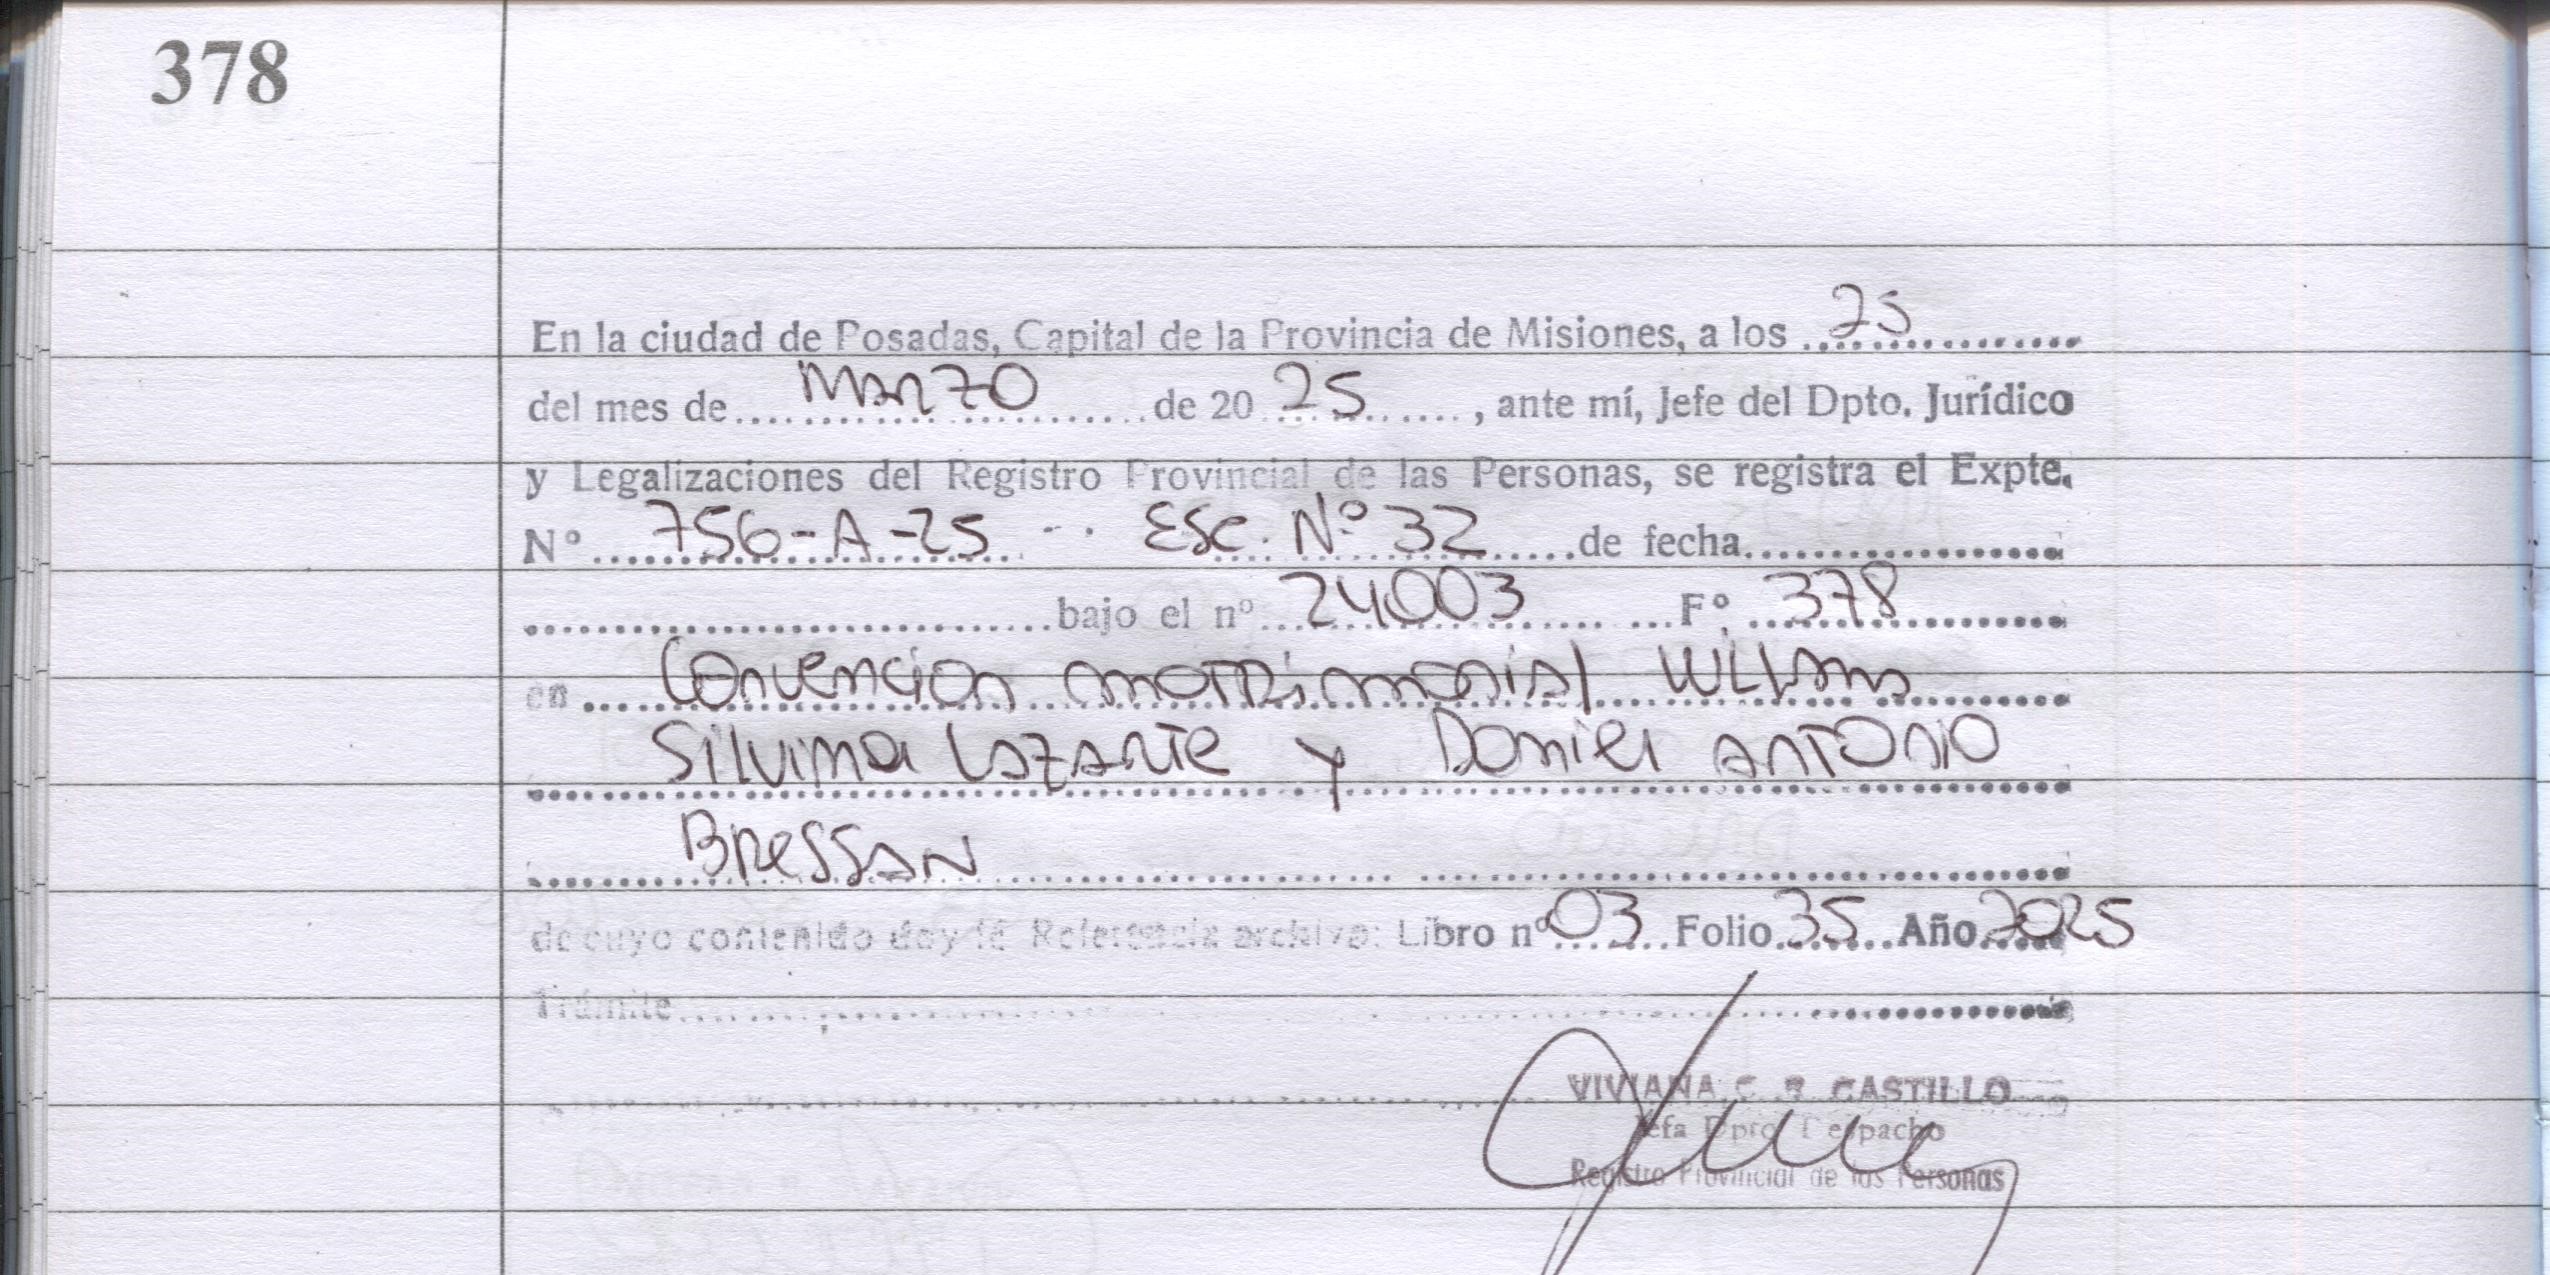 378
En la ciudad de Posadas, Capital de la Provincia de Misiones, a los 25
del mes de Marzo de 20 25, ante mí, Jefe del Dpto. Jurídico
y Legalizaciones del Registro Provincial de las Personas, se registra el Expte.
Nº 756-A-25 Esc. Nº 32 de fecha
bajo el nº 24003 Fº 378
en Convencion matrimonial
Silvina Lazarte y Daniel Antonio
Bressan
de cuyo contenido doy fé Referencia archivo: Libro nº 03 Folio 35 Año 2025
Trámite
VIVIANA C. CASTILLO
Jefa Dpto. Despacho
Registro Provincial de las Personas